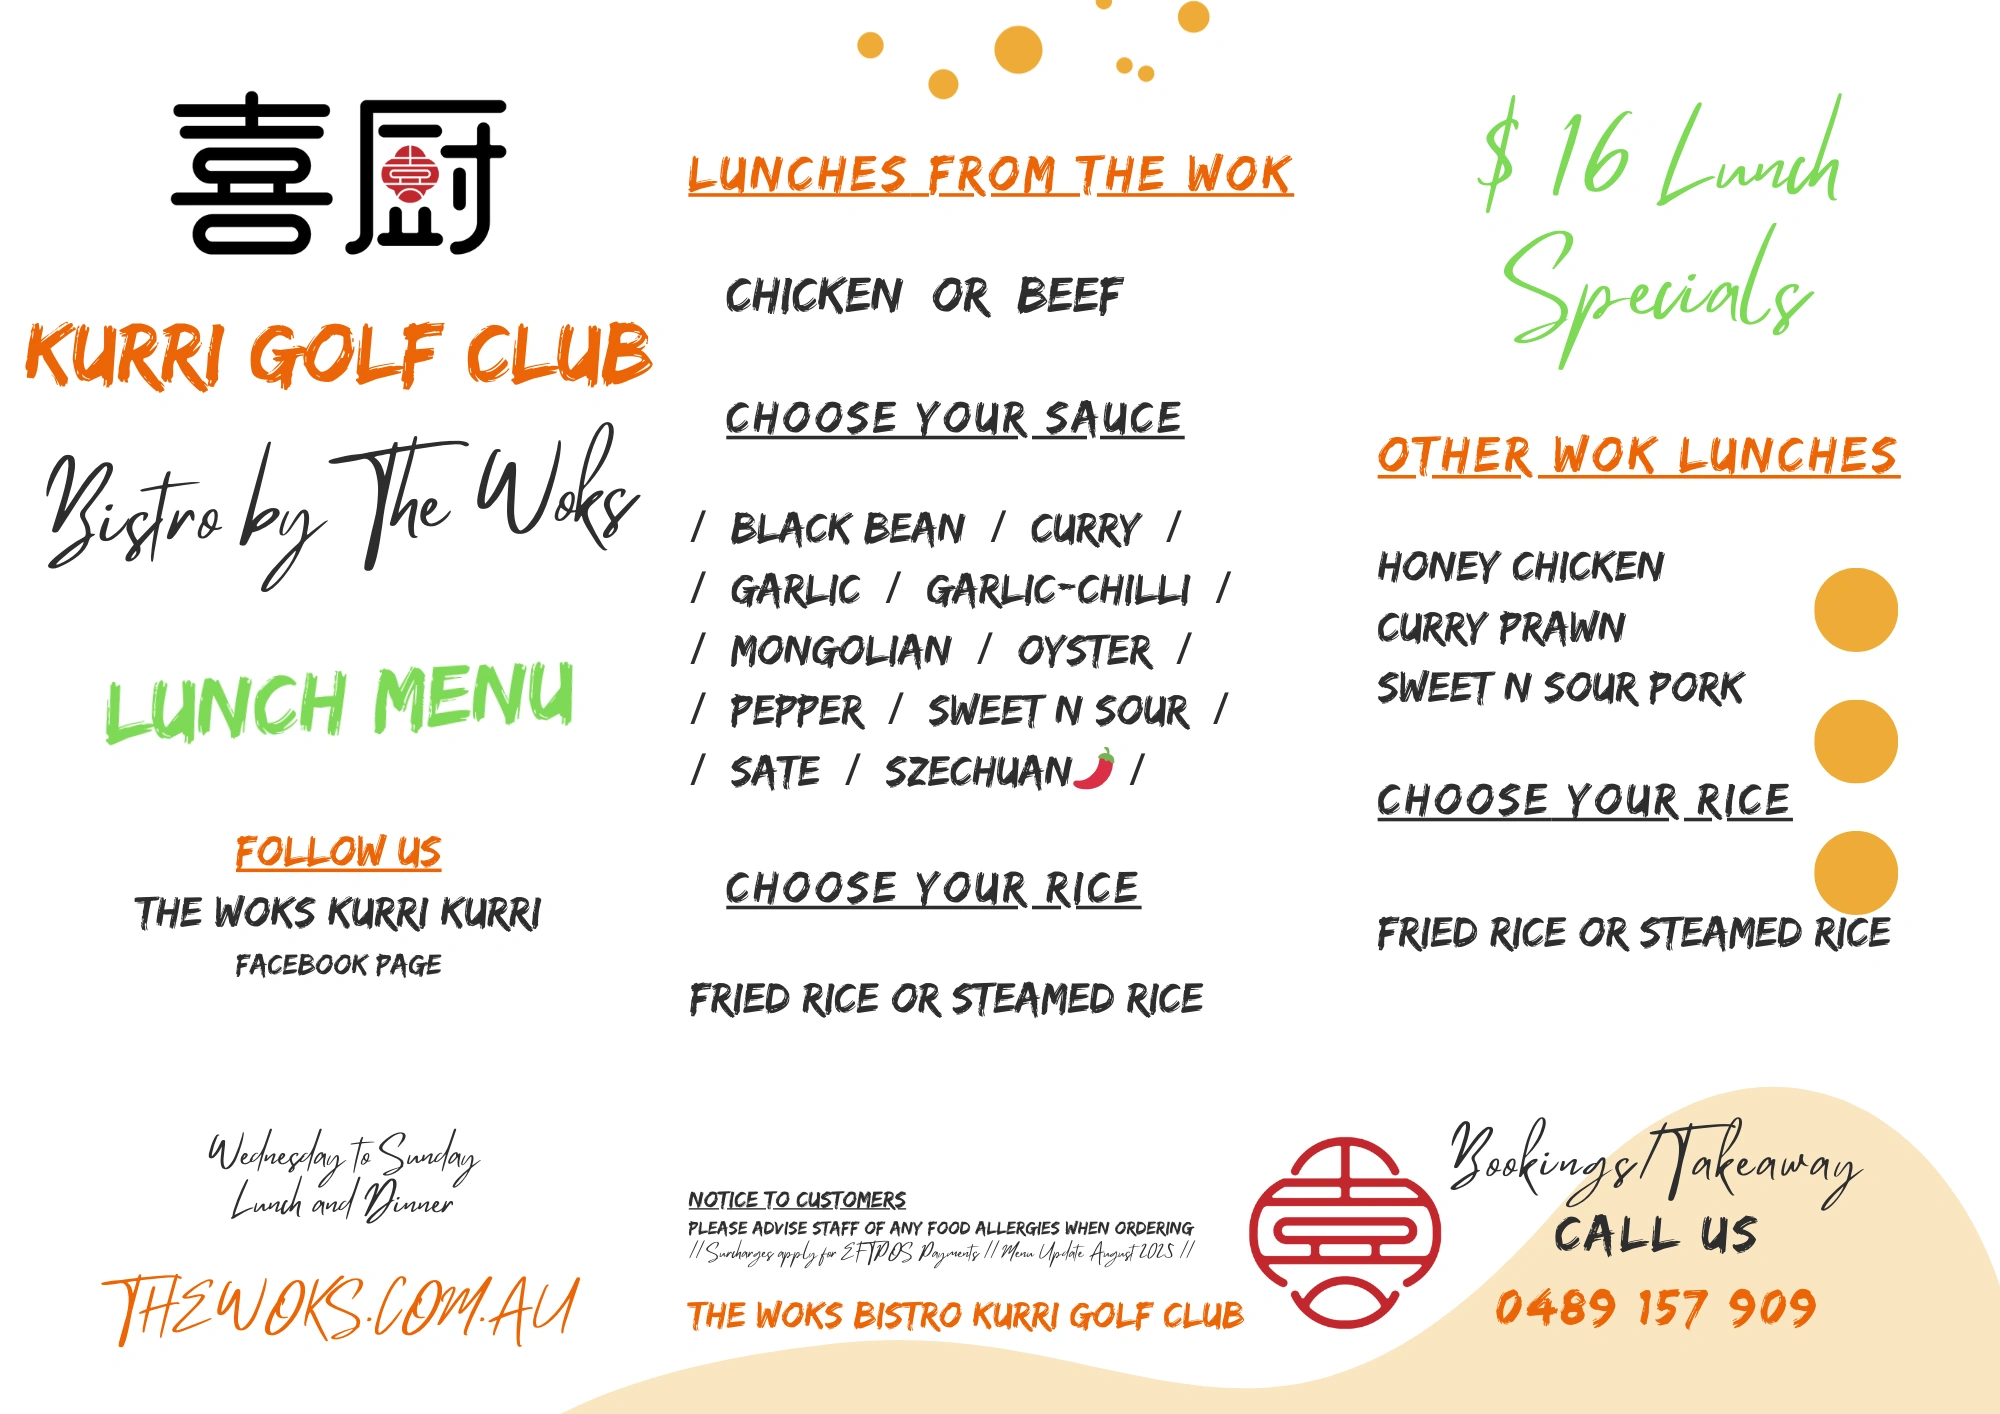 喜厨
KURRI GOLF CLUB
Bistro by The Woks
LUNCH MENU
FOLLOW US
THE WOKS KURRI KURRI
FACEBOOK PAGE
Wednesday to Sunday
Lunch and Dinner
THEWOKS.COM.AU
LUNCHES FROM THE WOK
CHICKEN OR BEEF
CHOOSE YOUR SAUCE
/ BLACK BEAN / CURRY /
/ GARLIC / GARLIC-CHILLI /
/ MONGOLIAN / OYSTER /
/ PEPPER / SWEET N SOUR /
/ SATE / SZECHUAN🌶️ /
CHOOSE YOUR RICE
FRIED RICE OR STEAMED RICE
NOTICE TO CUSTOMERS
PLEASE ADVISE STAFF OF ANY FOOD ALLERGIES WHEN ORDERING
//Surcharges apply for EFTPOS Payments // Menu Update August 2025 //
THE WOKS BISTRO KURRI GOLF CLUB
$ 16 Lunch
Specials
OTHER WOK LUNCHES
HONEY CHICKEN
CURRY PRAWN
SWEET N SOUR PORK
CHOOSE YOUR RICE
FRIED RICE OR STEAMED RICE
Bookings/Takeaway
CALL US
0489 157 909